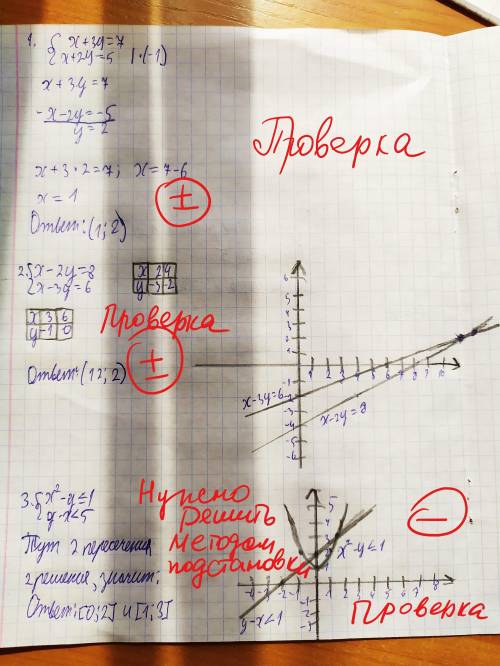 1. { x+3y=7
{ x+2y=5 | ·(-1)
x+3y=7
-x-2y=-5
y=2
x+3·2=7; x=7-6
x=1
Ответ: (1; 2)
Проверка
±
2. { x-2y=8
{ x-3y=6
x 2 4
y -3 -2
x 3 6
y -1 0
Проверка
±
Ответ: (12; 2)
x-3y=6
x-2y=8
3. { x²-y≤1
{ y-x<5
Тут 2 пересечения
2 решения, значит:
Ответ: [0;2] и [1;3]
Нужно
решить
методом
подстановки
−
x²-y≤1
y-x<1
Проверка